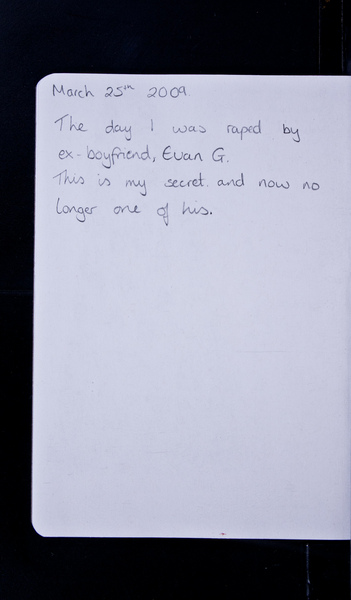 March 25th 2009.
The day I was raped by
ex-boyfriend, Evan G.
This is my secret. and now no
longer one of his.